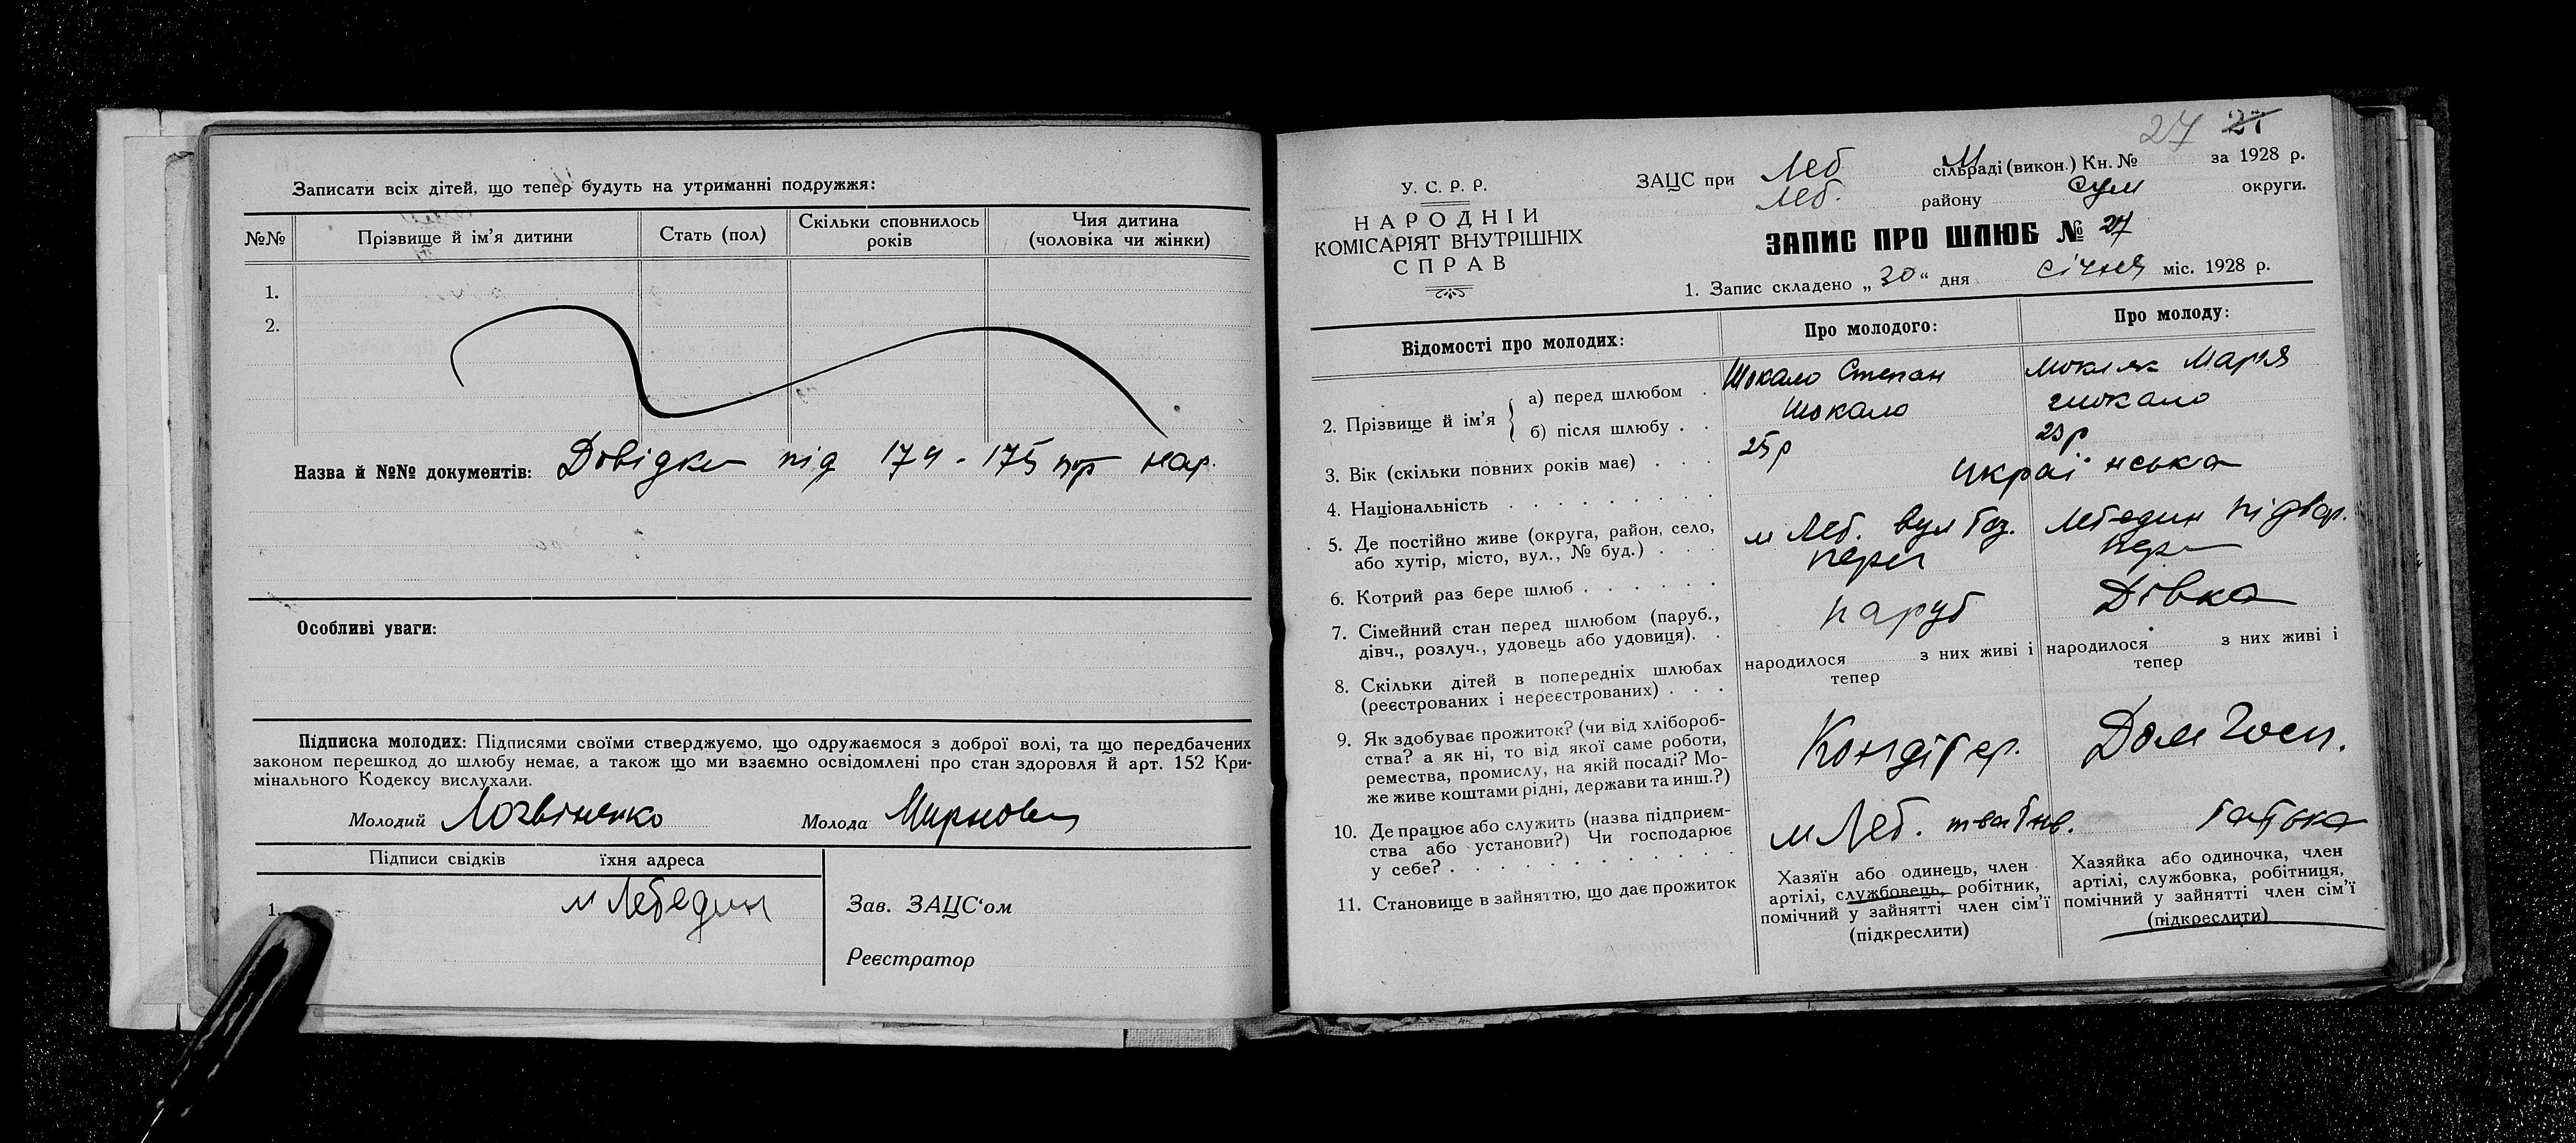 Записати всіх дітей, що тепер будуть на утриманні подружжя:
№№ Прізвище й ім'я дитини Стать (пол) Скільки сповнилось років Чия дитина (чоловіка чи жінки)
1.
2.
Назва й №№ документів: Довідки під 174 - 175 нар.
Особливі уваги:
Підписка молодих: Підписями своїми стверджуємо, що одружаємося з доброї волі, та що передбачених
законом перешкод до шлюбу немає, а також що ми взаємно освідомлені про стан здоровля й арт. 152 Кри-
мінального Кодексу вислухали.
Молодий Логвіненко Молода
Підписи свідків їхня адреса
1. м Лебедин
Зав. ЗАЦС'ом
Реєстратор
27 27
У. С. Р. Р.
НАРОДНІЙ
КОМІСАРІЯТ ВНУТРІШНІХ
СПРАВ
ЗАЦС при Леб М сільраді (викон.) Кн. № за 1928 р.
Леб. району Сум округи.
ЗАПИС ПРО ШЛЮБ № 27
1. Запис складено „30“ дня січня міс. 1928 р.
Відомості про молодих: Про молодого: Про молоду:
2. Прізвище й ім'я
а) перед шлюбом . Шокало Степан Мокляк Марія
б) після шлюбу . . Шокало Шокало
3. Вік (скільки повних років має) . . . 25р 23р
4. Національність . . . . . . . . . українська
5. Де постійно живе (округа, район, село,
або хутір, місто, вул., № буд.) . . .
м Леб. вул Лебедин
6. Котрий раз бере шлюб . . . . . . перш перш
7. Сімейний стан перед шлюбом (паруб.,
дівч., розлуч., удовець або удовиця). .
паруб Дівка
8. Скільки дітей в попередніх шлюбах
(реєстрованих і нереєстрованих) . . .
народилося з них живі і
тепер
народилося з них живі і
тепер
9. Як здобуває прожиток? (чи від хлібороб-
ства? а як ні, то від якої саме роботи,
ремества, промислу, на якій посаді? Мо-
же живе коштами рідні, держави та инш.?)
Кондітер. Дом госп.
10. Де працює або служить (назва підприєм-
ства або установи?) Чи господарює
у себе? . . . . . . . . . . . .
м Леб. батька
11. Становище в зайняттю, що дає прожиток
Хазяїн або одинець, член
артілі, службовець, робітник,
помічний у зайнятті член сім'ї
(підкреслити)
Хазяйка або одиночка, член
артілі, службовка, робітниця,
помічний у зайнятті член сім'ї
(підкреслити)